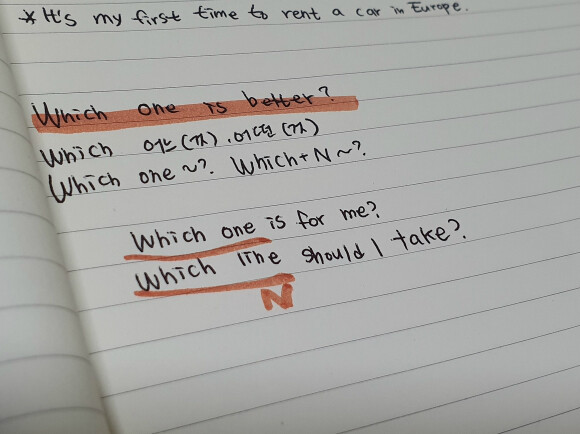 * It's my first time to rent a car in Europe.
Which one is better?
Which 어느 (것). 어떤 (것)
Which one ~?. Which + N ~?.
Which one is for me?
Which line should I take?
N